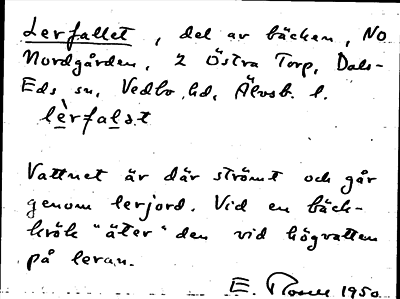 Lerfallet, del av bäcken, NO
Nordgården, 2 Östra Torp, Dals-
Eds sn, Vedbo hd, Älvsb. l.
lèrfalət
Vattnet är där strömt och går
genom lerjord. Vid en bäck-
krök "äter" den vid högvatten
på leran.
E. 1950